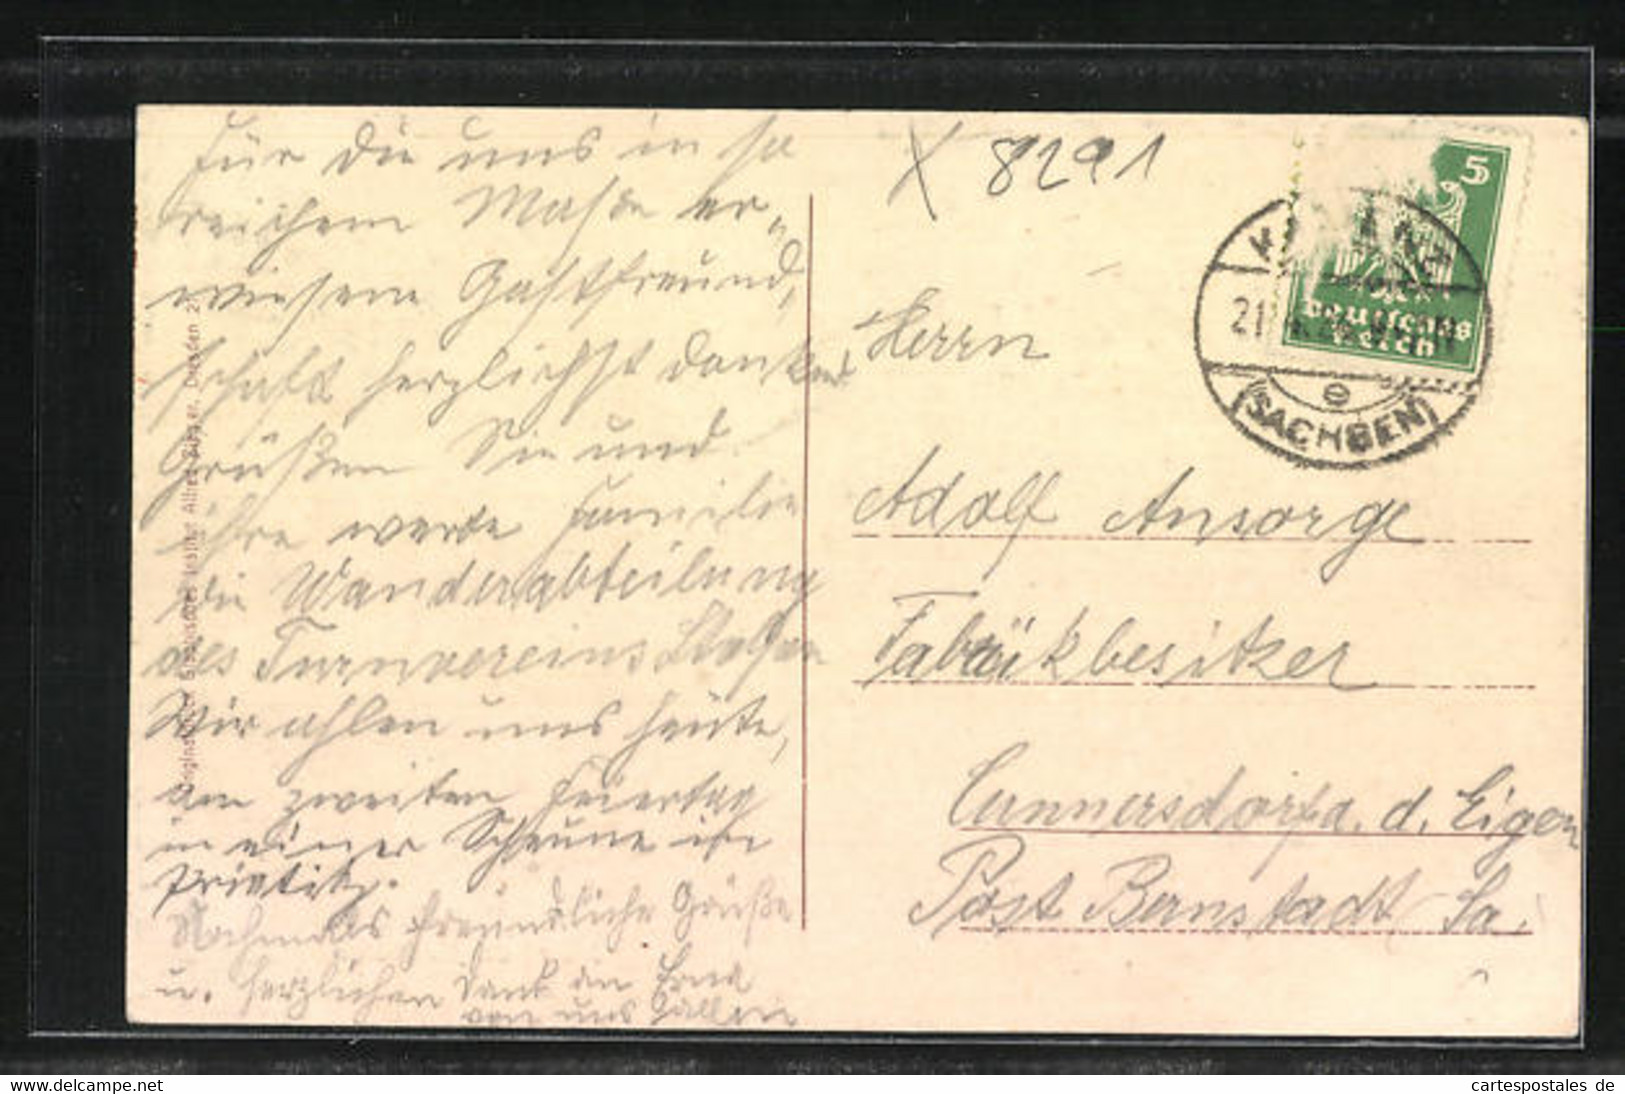 Für die uns in so
reichem Maße er-
wiesene Gastfreund,
schaft herzlichst dankend
Grüßen Sie und
ihre werte Familie
die Wanderabteilung
des Turnvereins
Wir ahlen uns heute,
am zweiten Feiertag
in einer Scheune in
Nochmals freundliche Grüße
u. herzlichen Dank an
von uns Allen
X 8291
5
Deutsches
Reich
21
(SACHSEN)
Herrn
Adolf Ansorge
Fabrikbesitzer
Cunnersdorf a. d. Eigen
Post Bernstadt Sa.
Dresden 2
www.delcampe.net
cartespostales de